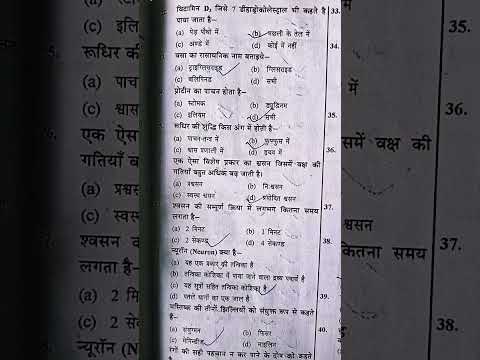 विटामिन D₃ जिसे 7 डीहाइड्रोकोलेस्ट्राल भी कहते है
पाया जाता है–
(a) पेड़ पौधों में (b) मछली के तेल में
(c) अण्डे में (d) कोई में नहीं
वसा का रासायनिक नाम बताइये–
(a) ट्राइग्लिसराइड (b) ग्लिसराइड
(c) (d) सभी
प्रोटीन का पाचन होता है–
(a) स्टोमक (b) ड्यूडिनम
(c) इलियम (d) सभी
रूधिर की शुद्धि किस अंग में होती है–
(a) पाचन-तन्त्र में (b) फुफ्फुस में
(c) श्वास प्रणाली में (d) हृदय में
एक ऐसा विशेष प्रकार का श्वसन जिसमें वक्ष की
गतियाँ बहुत अधिक बढ़ जाती है।
(a) प्रश्वसन (b) निःश्वसन
(c) स्वस्थ श्वसन (d) श्वसन
श्वसन की सम्पूर्ण क्रिया में लगभग कितना समय
लगता है–
(a) 2 मिनट (b) 1 मिनट
(c) 2 सेकण्ड (d) 4 सेकण्ड
न्यूरॉन (Neuron) क्या है–
(a) यह एक प्रकार की तन्त्रिका है
(b) तन्त्रिका कोशिका में पाया जाने वाला द्रव्य पदार्थ है
(c) यह सूत्रों सहित तन्त्रिका कोशिका है
(d) पतले धागों का एक जाल है
मस्तिष्क की तीनों झिल्लियों को संयुक्त रूप से कहते
है–
(a) (b) फिसर
(c) मेनिन्जीज (d) माइलिन
रंगों की सही पहचान न कर पाने के दोष को कहते
33.
34.
35.
36.
37.
38.
39.
40.
रूधिर की
(a) पाचन
(c) श्वास
एक ऐ
गतियाँ
(a) प्रश्वस
(c) स्वस्
श्वसन
लगता है–
(a) 2 मि
(c) 2 से
न्यूरॉन (N
समें वक्ष की
36.
श्वसन
कितना समय
37.
38.